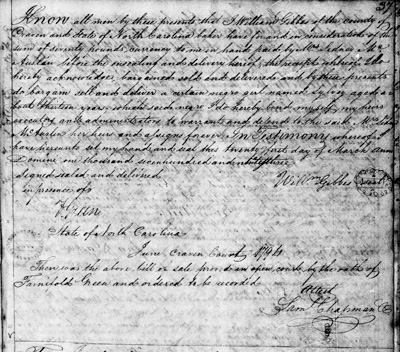 37
Know all men by these presents that I William Gibbs of the county of
Craven and State of North Carolina taylor have for and in consideration of the
sum of seventy pounds currency to me in hand paid by Mrs. Sydney Mc
Auslan before the ensealing and delivery hereof, the receipt whereof I do
hereby acknowledge, bargained sold and delivered and by these presents
do bargain sell and deliver a certain negro girl named Lucy aged a-
bout thirteen years which said negro I do hereby bind myself, my heirs
executors and administrators to warrant and defend to the said Mrs.
her heirs and assigns forever. In Testimony whereof I
have hereunto set my hand and seal this twenty first day of March anno
Domini one thousand seven hundred and ninety three
Willm Gibbs Seal
Signed sealed and delivered
in presence of
F. Green
State of North Carolina
June Craven County 1794
Then was the above bill of sale proved in open court by the oath of
Farnifold Green and ordered to be recorded
Attest
Saml Chapman C